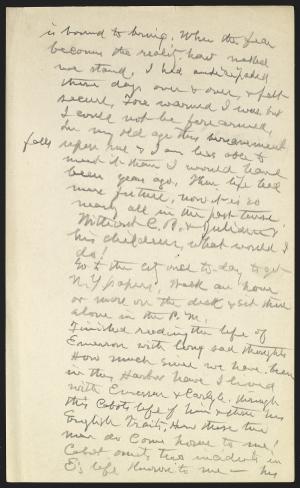 is bound to bring. When the fear
becomes the reality how
we stand. I had anticipated
these days over & over, & felt
secure. Fore warned I was but
I could not be forearmed.
In my old age this bereavement
falls upon me & I am less able to
meet it than I would have
been years ago. Then life had
more future, now it is so
nearly all in the past tense.
Without C. B. & Julian &
his children, what would I
do!
Go to the city over to-day to get
N. Y. papers. Walk an hour
or more on the deck & sit there
alone in the P.M.
Finished reading the life of
Emerson with long sad thoughts
How much since we have been
in this Harbor have I lived
with Emerson & Carlyle, through
this Cabot's life of him & then his
English Traits. How these two
men do come home to me!
Cabot omits two incidents in
E's life known to me — his